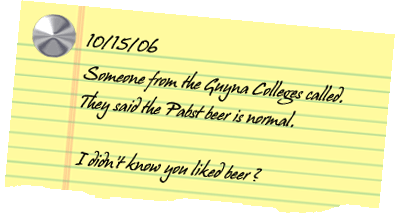 10/15/06
Someone from the Guyna Colleges called.
They said the Pabst beer is normal.
I didn't know you liked beer?